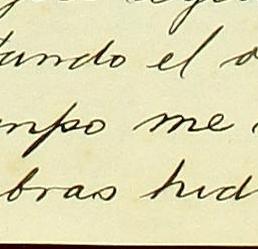 ando el
mpo me
bras hid